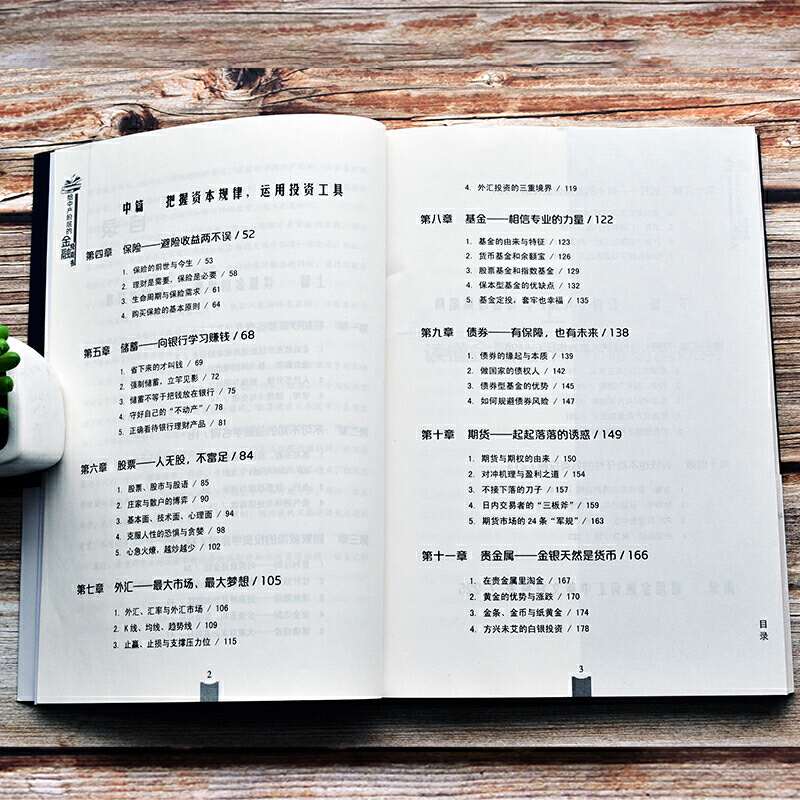 给中产阶层的
金融
中篇 把握资本规律，运用投资工具
第四章 保险——避险收益两不误 / 52
1. 保险的前世与今生 / 53
2. 理财是需要，保险是必要 / 58
3. 生命周期与保险需求 / 61
4. 购买保险的基本原则 / 64
第五章 储蓄——向银行学习赚钱 / 68
1. 省下来的才叫钱 / 69
2. 强制储蓄，立竿见影 / 72
3. 储蓄不等于把钱放在银行 / 75
4. 守好自己的“不动产” / 78
5. 正确看待银行理财产品 / 81
第六章 股票——人无股，不富足 / 84
1. 股票、股市与股语 / 85
2. 庄家与散户的博弈 / 90
3. 基本面、技术面、心理面 / 94
4. 克服人性的恐惧与贪婪 / 98
5. 心急火燎，越炒越少 / 102
第七章 外汇——最大市场、最大梦想 / 105
1. 外汇、汇率与外汇市场 / 106
2. K 线、均线、趋势线 / 109
3. 止赢、止损与支撑压力位 / 115
2
4. 外汇投资的三重境界 / 119
第八章 基金——相信专业的力量 / 122
1. 基金的由来与特征 / 123
2. 货币基金和余额宝 / 126
3. 股票基金和指数基金 / 129
4. 保本型基金的优缺点 / 132
5. 基金定投，套牢也幸福 / 135
第九章 债券——有保障，也有未来 / 138
1. 债券的缘起与本质 / 139
2. 做国家的债权人 / 142
3. 债券型基金的优势 / 145
4. 如何规避债券风险 / 147
第十章 期货——起起落落的诱惑 / 149
1. 期货与期权的由来 / 150
2. 对冲机理与盈利之道 / 154
3. 不接下落的刀子 / 157
4. 日内交易者的“三板斧” / 159
5. 期货市场的 24 条“军规” / 163
第十一章 贵金属——金银天然是货币 / 166
1. 在贵金属里淘金 / 167
2. 黄金的优势与涨跌 / 170
3. 金条、金币与纸黄金 / 174
4. 方兴未艾的白银投资 / 178
目录
3